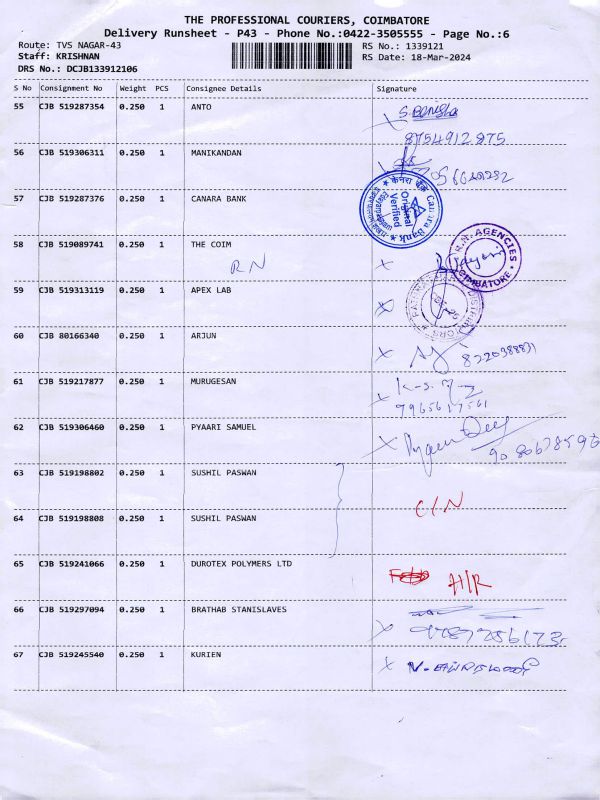 THE PROFESSIONAL COURIERS, COIMBATORE
Delivery Runsheet - P43 - Phone No.:0422-3505555 - Page No.:6
Route: TVS NAGAR-43 RS No.: 1339121
Staff: KRISHNAN RS Date: 18-Mar-2024
DRS No.: DCJB133912106
S No Consignment No Weight PCS Consignee Details Signature
55 CJB 519287354 0.250 1 ANTO
8754912875
56 CJB 519306311 0.250 1 MANIKANDAN
57 CJB 519287376 0.250 1 CANARA BANK
Canara Bank
Original
Verified
58 CJB 519089741 0.250 1 THE COIM
RN
R.N. AGENCIES
COIMBATORE
59 CJB 519313119 0.250 1 APEX LAB
60 CJB 80166340 0.250 1 ARJUN
8220388831
61 CJB 519217877 0.250 1 MURUGESAN
62 CJB 519306460 0.250 1 PYAARI SAMUEL
63 CJB 519198802 0.250 1 SUSHIL PASWAN
C/N
64 CJB 519198808 0.250 1 SUSHIL PASWAN
65 CJB 519241066 0.250 1 DUROTEX POLYMERS LTD
H/R
66 CJB 519297094 0.250 1 BRATHAB STANISLAVES
67 CJB 519245540 0.250 1 KURIEN